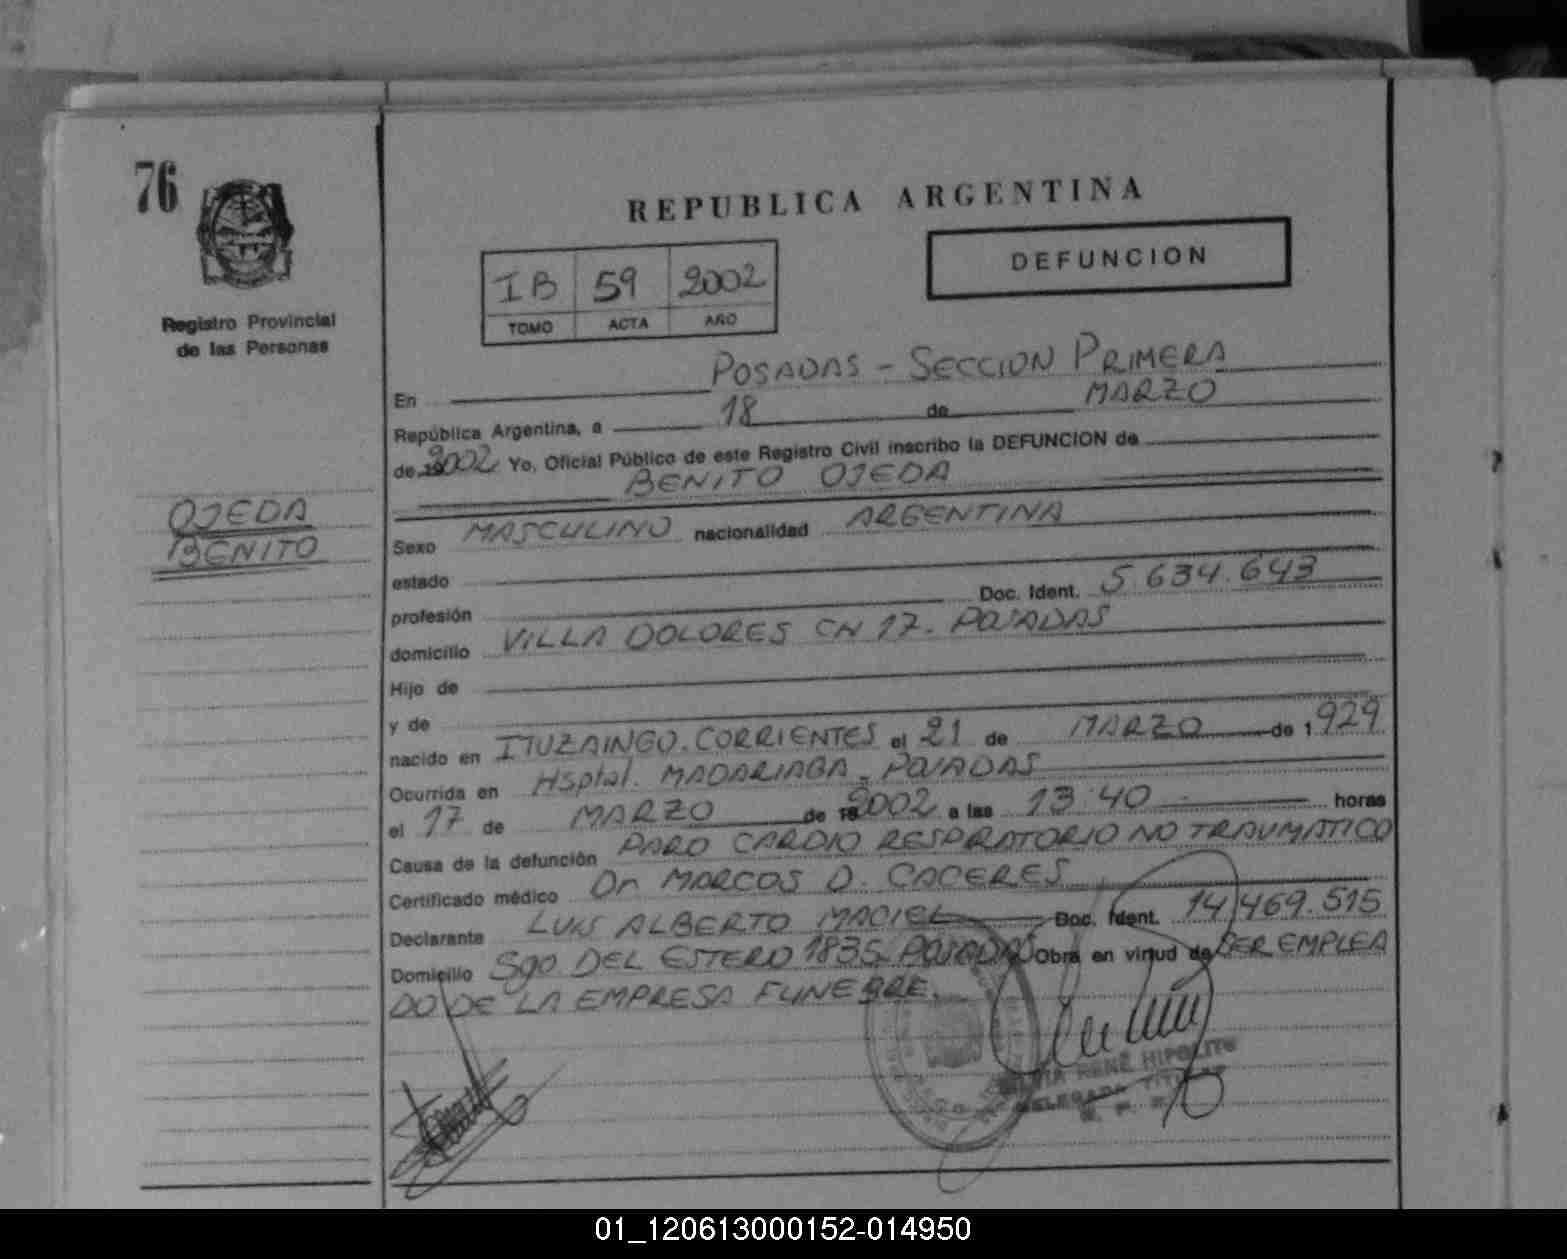 76
REPUBLICA ARGENTINA
DEFUNCION
IB 59 2002
TOMO ACTA AÑO
Registro Provincial
de las Personas
En POSADAS - SECCION PRIMERA
República Argentina, a 18 de MARZO
de 2002 Yo, Oficial Público de este Registro Civil inscribo la DEFUNCION de
BENITO OJEDA
OJEDA
BENITO
Sexo MASCULINO nacionalidad ARGENTINA
estado
profesión Doc. Ident. 5.634.643
domicilio VILLA DOLORES CN 17. POSADAS
Hijo de
y de
nacido en ITUZAINGO. CORRIENTES el 21 de MARZO de 1929
Ocurrida en Hsptal. MADARIAGA. POSADAS
el 17 de MARZO de 2002 a las 13:40 horas
Causa de la defunción PARO CARDIO RESPIRATORIO NO TRAUMATICO
Certificado médico Dr MARCOS D. CACERES
Declarante LUIS ALBERTO MACIEL Doc. Ident. 14.469.515
Domicilio Sgo DEL ESTERO 1835. POSADAS Obra en virtud de SER EMPLEA
DO DE LA EMPRESA FUNEBRE.
RENÉ HIPOLITO
DELEGADA TITULAR
01_120613000152-014950